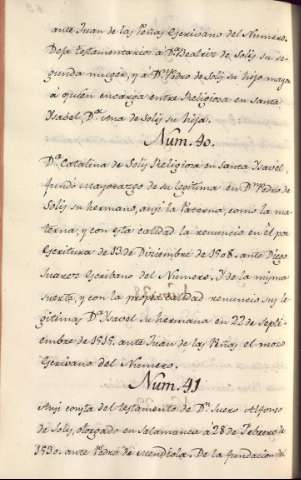 ante Juan de las Peñas Escrivano del Numero.
Deja testamentarios á D.ª Beatriz de Solis su se-
gunda muger, y á D.n Pedro de Solis su hijo mayor
á quien encarga entre Religiosa en Santa
Ysavel D.ª Ana de Solis su hija.
Num. 40.
D.ª Catalina de Solis Religiosa en Santa Ysavel
fundó mayorazgo de su legitima en D.n Pedro de
Solis su hermano, asi la Paterna, como la ma-
terna, y con esta calidad la renuncia en él por
Escritura de 13 de Diciembre de 1508. ante Diego
Juarez Escribano del Número. Y de la misma
suerte, y con la propia calidad renunció sus le-
gitimas D.ª Ysavel su hermana en 22 de Septi-
embre de 1515. ante Juan de las Peñas el mozo
Escrivano del Numero.
Num. 41
Asi consta del testamento de D.n Suero Alfonso
de Solis, otorgado en Salamanca á 28 de Febrero de
1530. ante Pedro de De la fundacion del